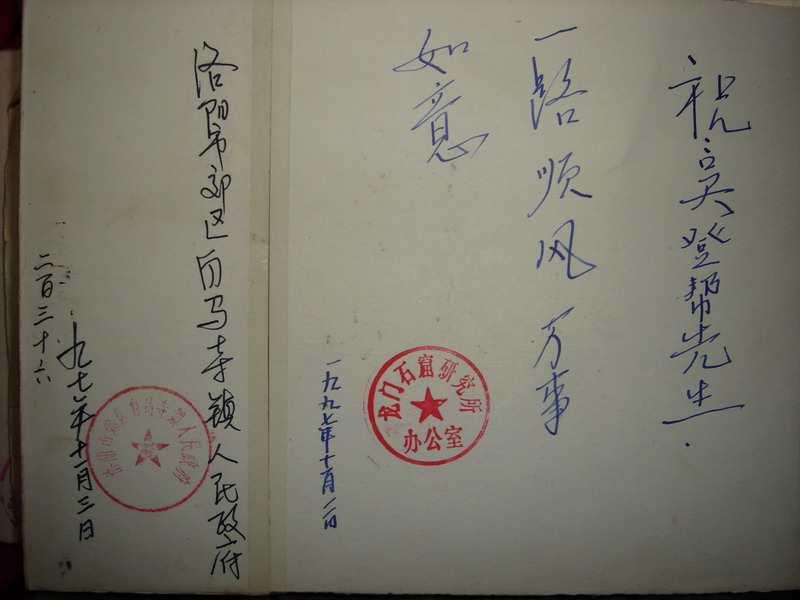 祝吴登帮先生
一路顺风万事
如意
龙门石窟研究所
办公室
一九九七年十一月二日
洛阳市郊区白马寺镇人民政府
洛阳市郊区白马寺镇人民政府
九七年十一月三日
二百三十六